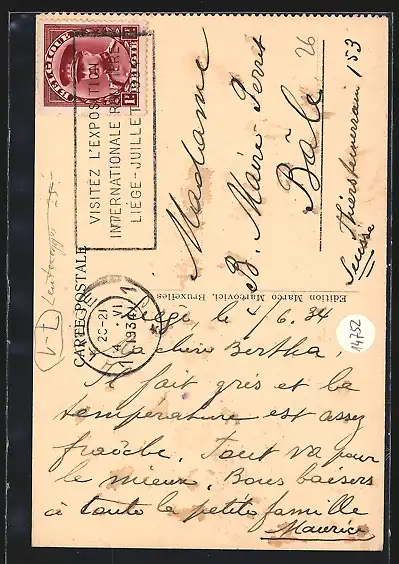 BELGIQUE
BELGIË
VISITEZ L'EXPOSITION
INTERNATIONALE
LIÈGE - JUILLET
20-21
VI
1934
CARTE POSTALE
Edition Marco Marcovici, Bruxelles
Madame
B. Maire-Perrit
Bâle
26
Thiersteinerrain 153
Suisse
14752
Liège le 4/6.34
Ma chère Bertha,
Il fait gris et la
température est assez
fraîche. Tout va pour
le mieux. Bons baisers
à toute la petite famille
Maurice